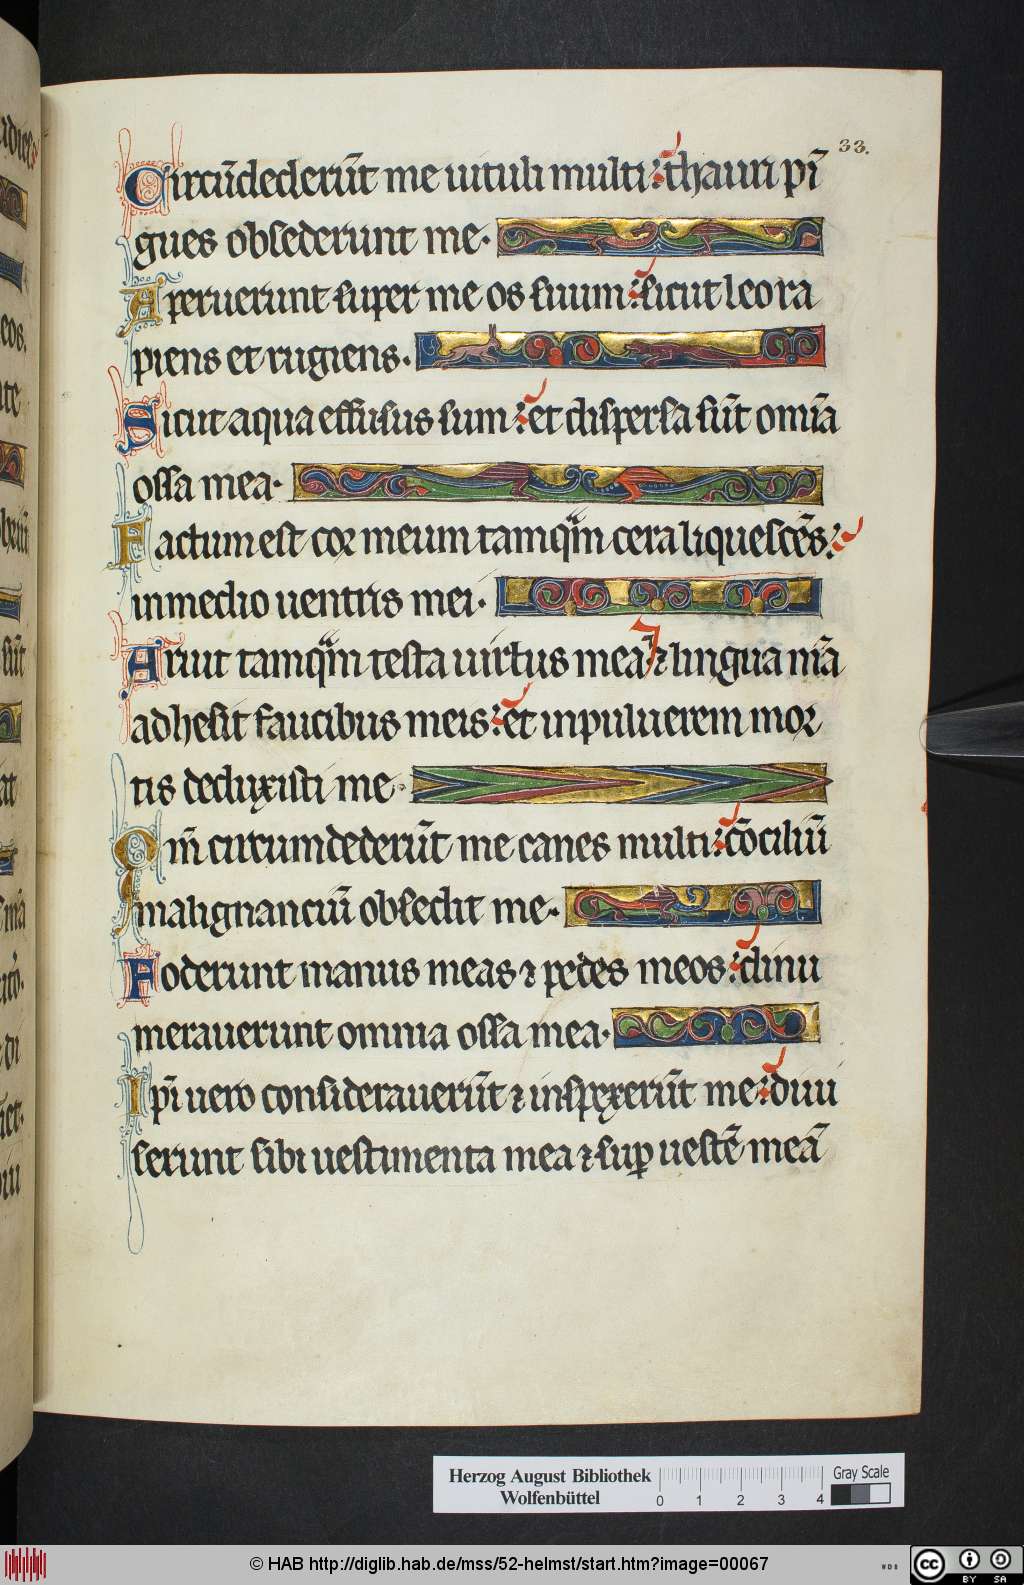 33.
Circūdederūt me uituli multi: thauri pī
gues obsederunt me.
Aperuerunt super me os suum: sicut leo ra
piens et rugiens.
Sicut aqua effusus sum: et dispersa sūt om̄ia
ossa mea.
Factum est cor meum tamqͣm cera liquescēs:
in medio uentris mei.
Aruit tamqͣm testa uirtus mea: ⁊ lingua m̄a
adhesit faucibus meis: et in puluerem mor
tis deduxisti me.
Qm̄ circumdederūt me canes multi: cōciliū
malignanciū obsedit me.
Foderunt manus meas ⁊ pedes meos: dinu
merauerunt omnia ossa mea.
Ip̄i uero considerauerūt ⁊ inspexerūt me: diui
serunt sibi uestimenta mea ⁊ suꝑ uestē meā
Herzog August Bibliothek
Wolfenbüttel
0 1 2 3 4
Gray Scale
© HAB http://diglib.hab.de/mss/52-helmst/start.htm?image=00067
WDB
cc BY SA